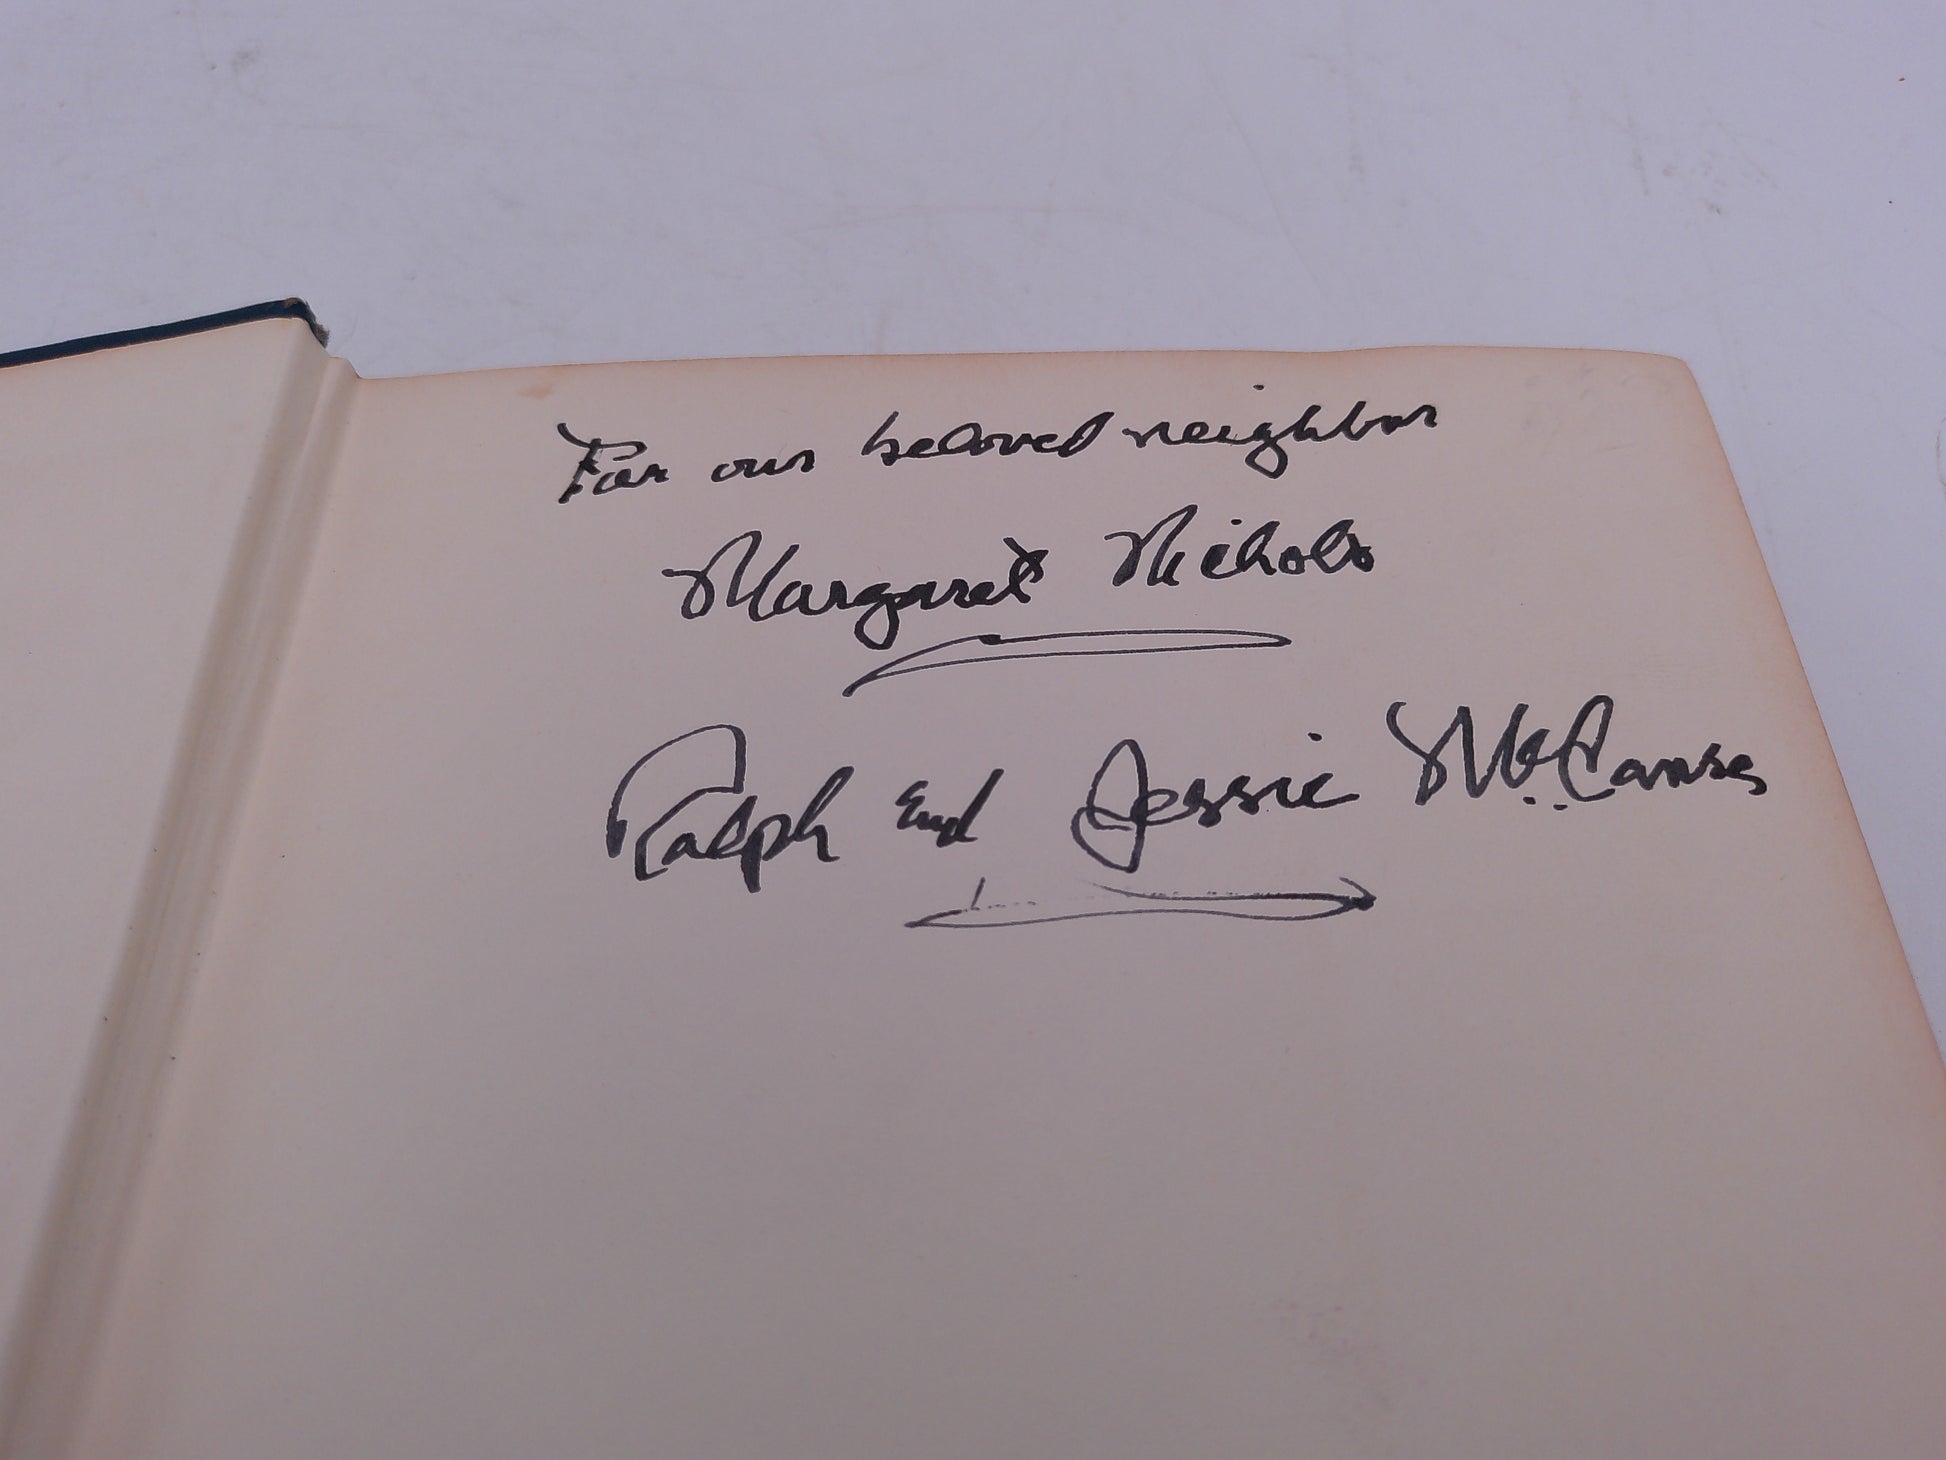 For our beloved neighbor
Margaret Nichols
Ralph and Jessie McCanse